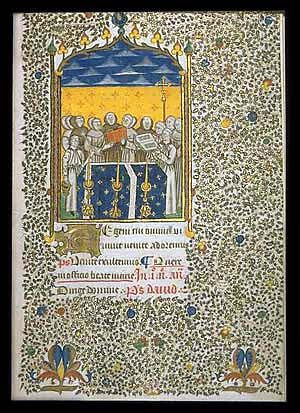 Regem cui omnia vi
uunt venite adoremus
ps Venite exultemus Quere
in officio beate marie In
Dirige domine. ps david